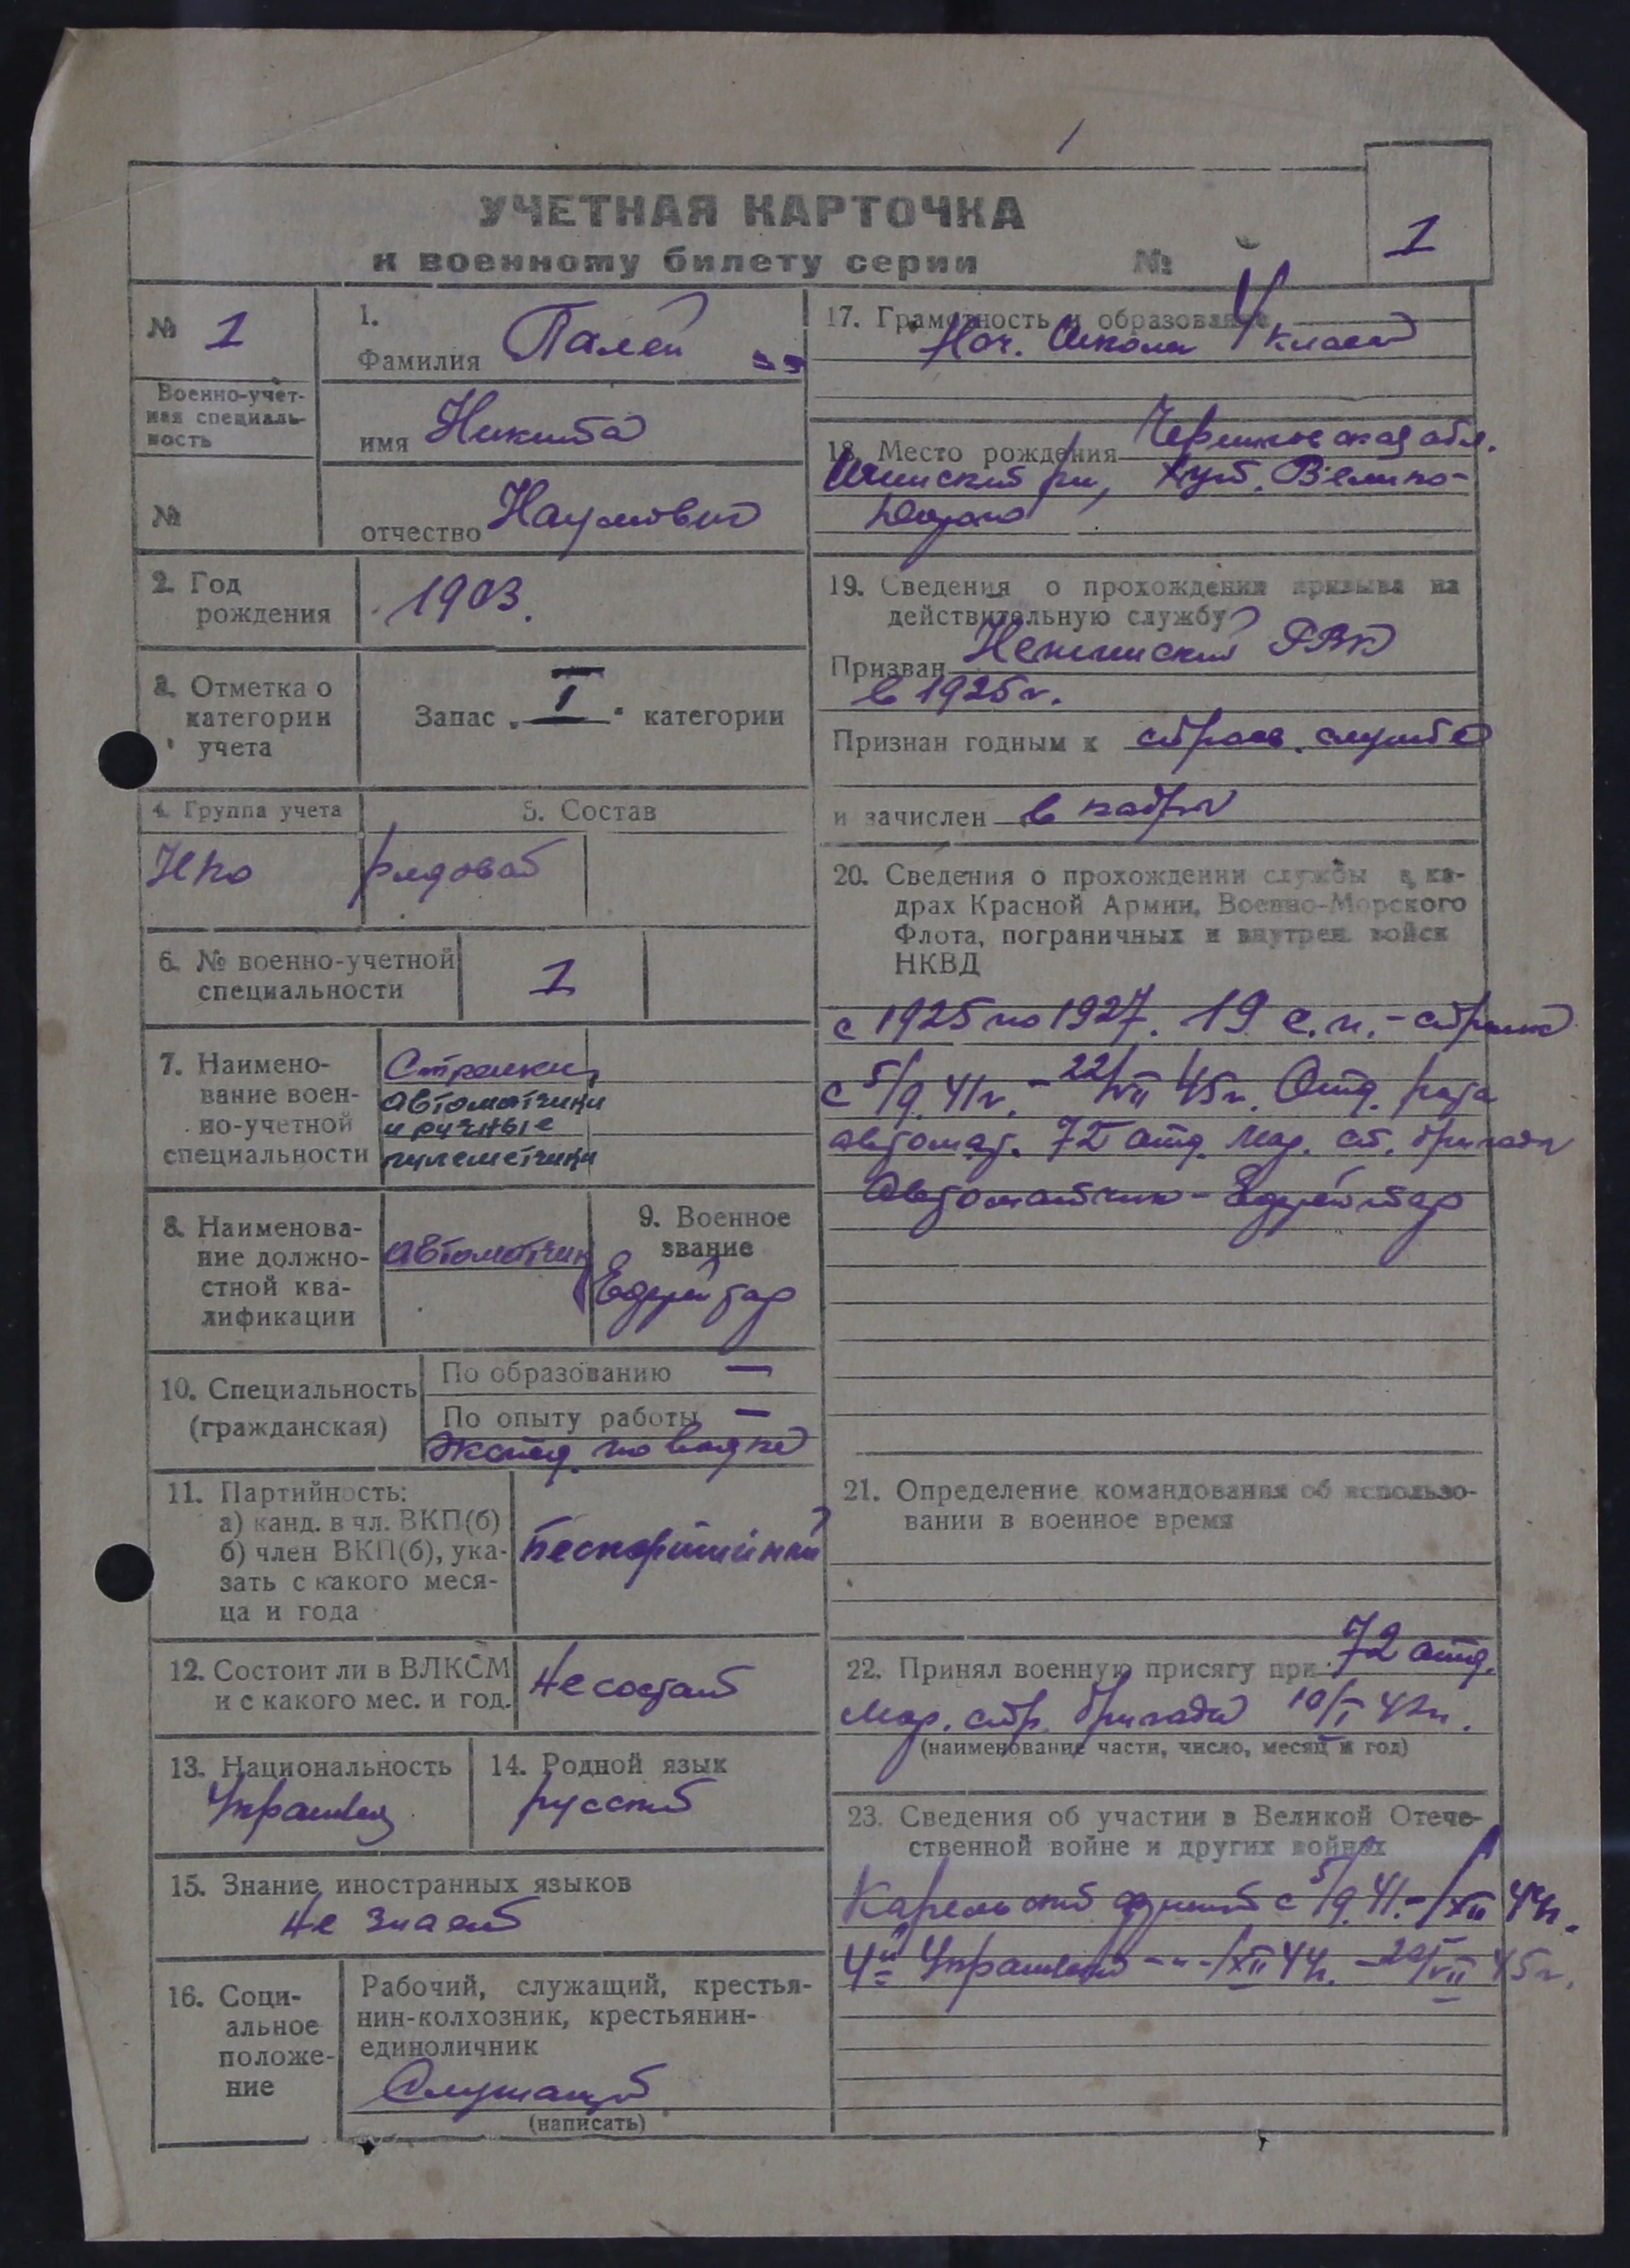 УЧЕТНАЯ КАРТОЧКА
к военному билету серии №
1
№ 1
Военно-учет-
ная специаль-
ность
№
1.
Фамилия Палей
имя Никита
отчество Наумович
2. Год
рождения
1903.
3. Отметка о
категории
учета
Запас „ I " категории
4. Группа учета
5. Состав
НКО
рядовой
6. № военно-учетной
специальности
1
7. Наимено-
вание воен-
но-учетной
специальности
Стрелки,
автоматчики
и ручные
пулеметчики
8. Наименова-
ние должно-
стной ква-
лификации
автоматчик
9. Военное
звание
Ефрейтор
10. Специальность
(гражданская)
По образованию —
По опыту работы —
по
11. Партийность:
а) канд. в чл. ВКП(б)
б) член ВКП(б), ука-
зать с какого меся-
ца и года
Беспартийный
12. Состоит ли в ВЛКСМ
и с какого мес. и год.
Не состоит
13. Национальность
Украинец
14. Родной язык
русский
15. Знание иностранных языков
Не знает
16. Соци-
альное
положе-
ние
Рабочий, служащий, крестья-
нин-колхозник, крестьянин-
единоличник
Служащий
(написать)
17. Грамотность и образование
Нач. школы класса
18. Место рождения Черниговская обл.
хут. Велико-
19. Сведения о прохождении призыва на
действительную службу
Призван РВК
в 1925 г.
Признан годным к строев. службе
и зачислен в кадры
20. Сведения о прохождении службы в ка-
драх Красной Армии, Военно-Морского
Флота, пограничных и внутрен. войск
НКВД
с 1925 по 1927. 19 с.п. - стрелок
с 5/9. 41 г. - 22/VII 45 г. Отд. рота
автомат. 72 отд. мор. ст. бригады
Автоматчик - Ефрейтор
21. Определение командования об использо-
вании в военное время
22. Принял военную присягу при 72 отд.
мор. стр. бригаде 10/I 42 г.
(наименование части, число, месяц и год)
23. Сведения об участии в Великой Отече-
ственной войне и других войнах
Карельский фронт с 5/9. 41. - /XII 44 г.
4й Украинский -"- /XII 44 г. - 20/VII 45 г.